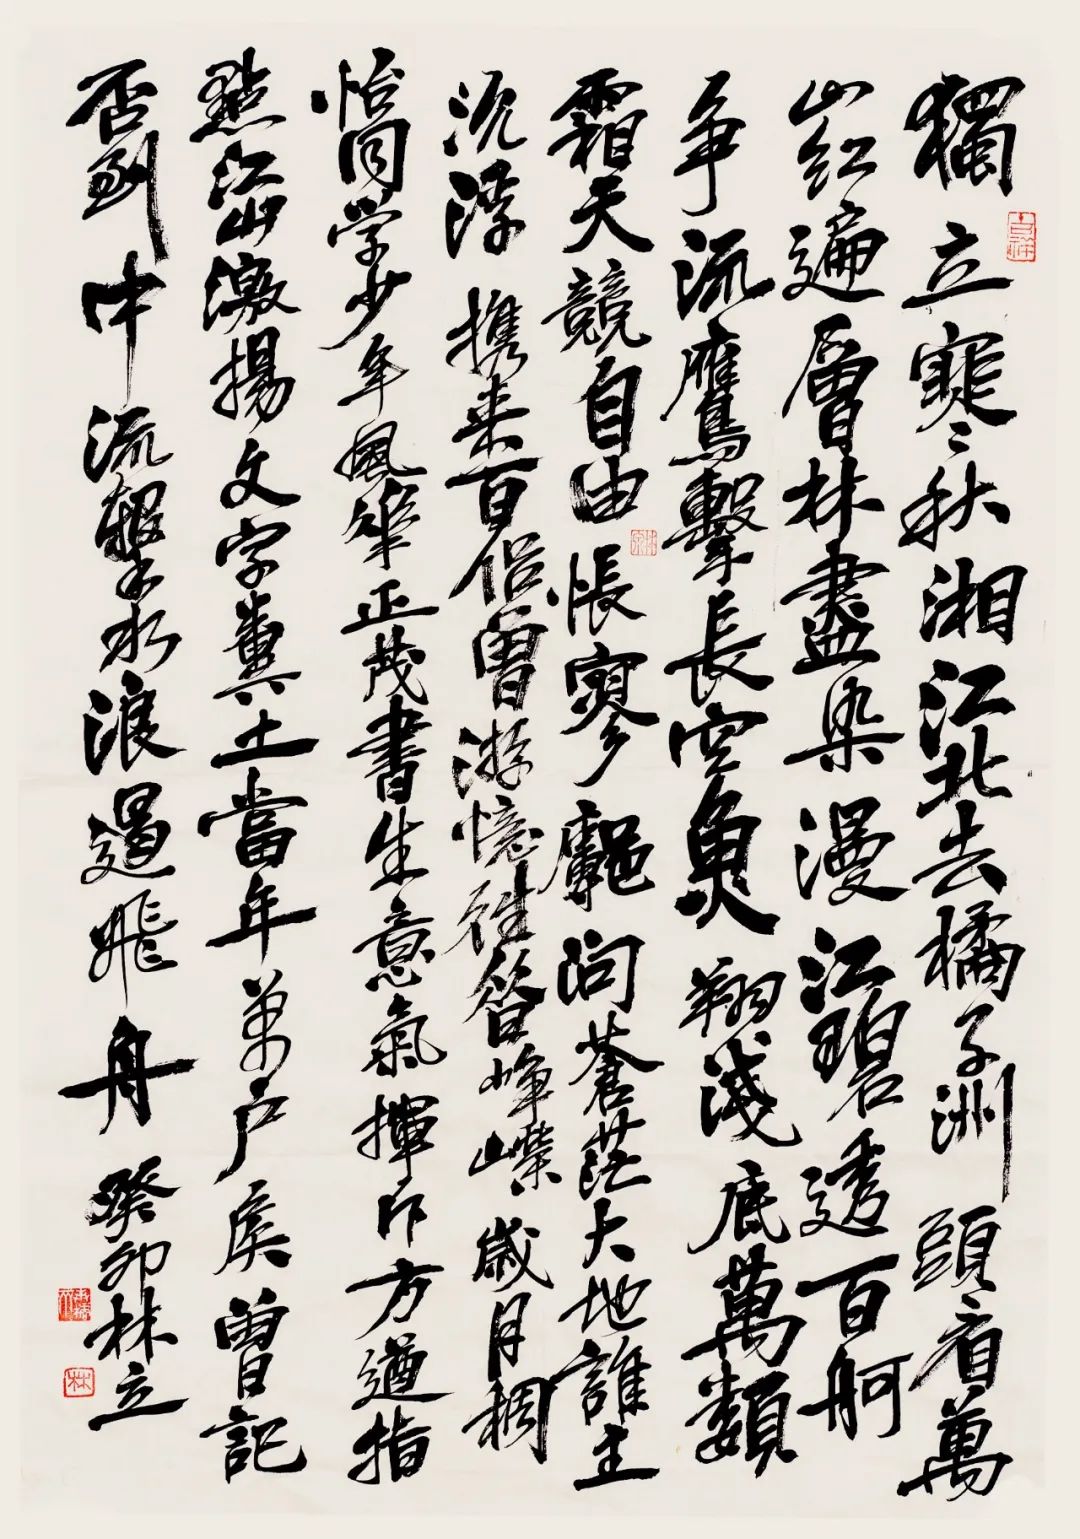 獨立寒秋湘江北去橘子洲頭看萬
山红遍層林盡染漫江碧透百舸
争流鷹擊長空魚翔淺底萬類
霜天競自由悵寥廓問蒼茫大地誰主
沉浮携来百侣曾游憶往昔峥嶸歲月稠
恰同学少年風華正茂書生意氣揮斥方遒指
點江山激揚文字糞土當年萬户侯曾記
否到中流擊水浪遏飛舟 癸卯林立
林